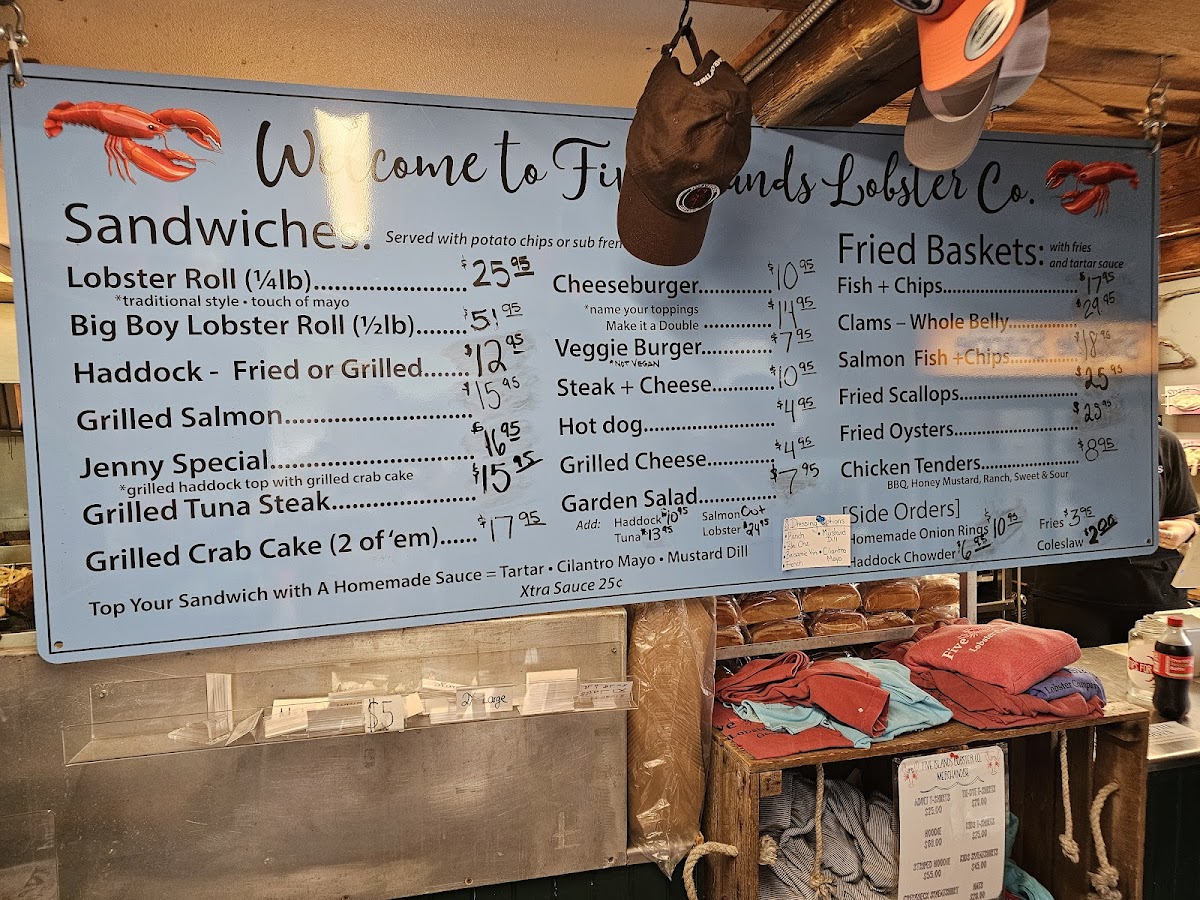 Welcome to Fi ands Lobster Co.
Sandwiches: Served with potato chips or sub fren
Lobster Roll (¼lb)........................$25.95
*traditional style • touch of mayo
Big Boy Lobster Roll (½lb)........$51.95
Haddock - Fried or Grilled.......$12.95
Grilled Salmon.............................$15.95
Jenny Special...............................$16.95
*grilled haddock top with grilled crab cake
Grilled Tuna Steak......................$15.95
Grilled Crab Cake (2 of 'em)......$17.95
Top Your Sandwich with A Homemade Sauce = Tartar • Cilantro Mayo • Mustard Dill
Xtra Sauce 25¢
Cheeseburger............$10.95
*name your toppings
Make it a Double ............$14.95
Veggie Burger............$7.95
*NOT VEGAN
Steak + Cheese...........$10.95
Hot dog......................$4.95
Grilled Cheese............$4.95
Garden Salad.............$7.95
Add: Haddock $10.95 Salmon Out
Tuna $13.95 Lobster $24.95
Dressing Options
• Ranch
• Mustard Dill
• French
• Cilantro Mayo
Fried Baskets: with fries
and tartar sauce
Fish + Chips.......................$17.95
Clams – Whole Belly..............$29.95
Salmon Fish +Chips...............$18.95
Fried Scallops.....................$25.95
Fried Oysters......................
Chicken Tenders..................$8.95
BBQ, Honey Mustard, Ranch, Sweet & Sour
[Side Orders]
Homemade Onion Rings $10.95 Fries $3.95
Haddock Chowder $6.95 Coleslaw $2.00
$5
Large
Five
Lobster
Lobster Company
FIVE ISLANDS LOBSTER CO.
MERCHANDISE
ADULT T-SHIRTS
$25.00
TIE-DYE T-SHIRTS
HOODIE
KIDS T-SHIRTS
STRIPED HOODIE
$55.00
KIDS SWEATSHIRTS
$45.00
CREWNECK SWEATSHIRT
HATS